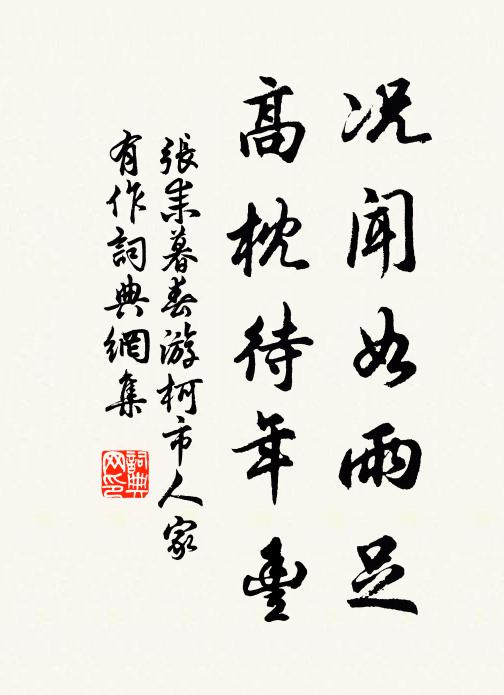 况闻如雨足
高枕待年豐
張耒暮春游柯市人家
有作詞典網集
詞典网印